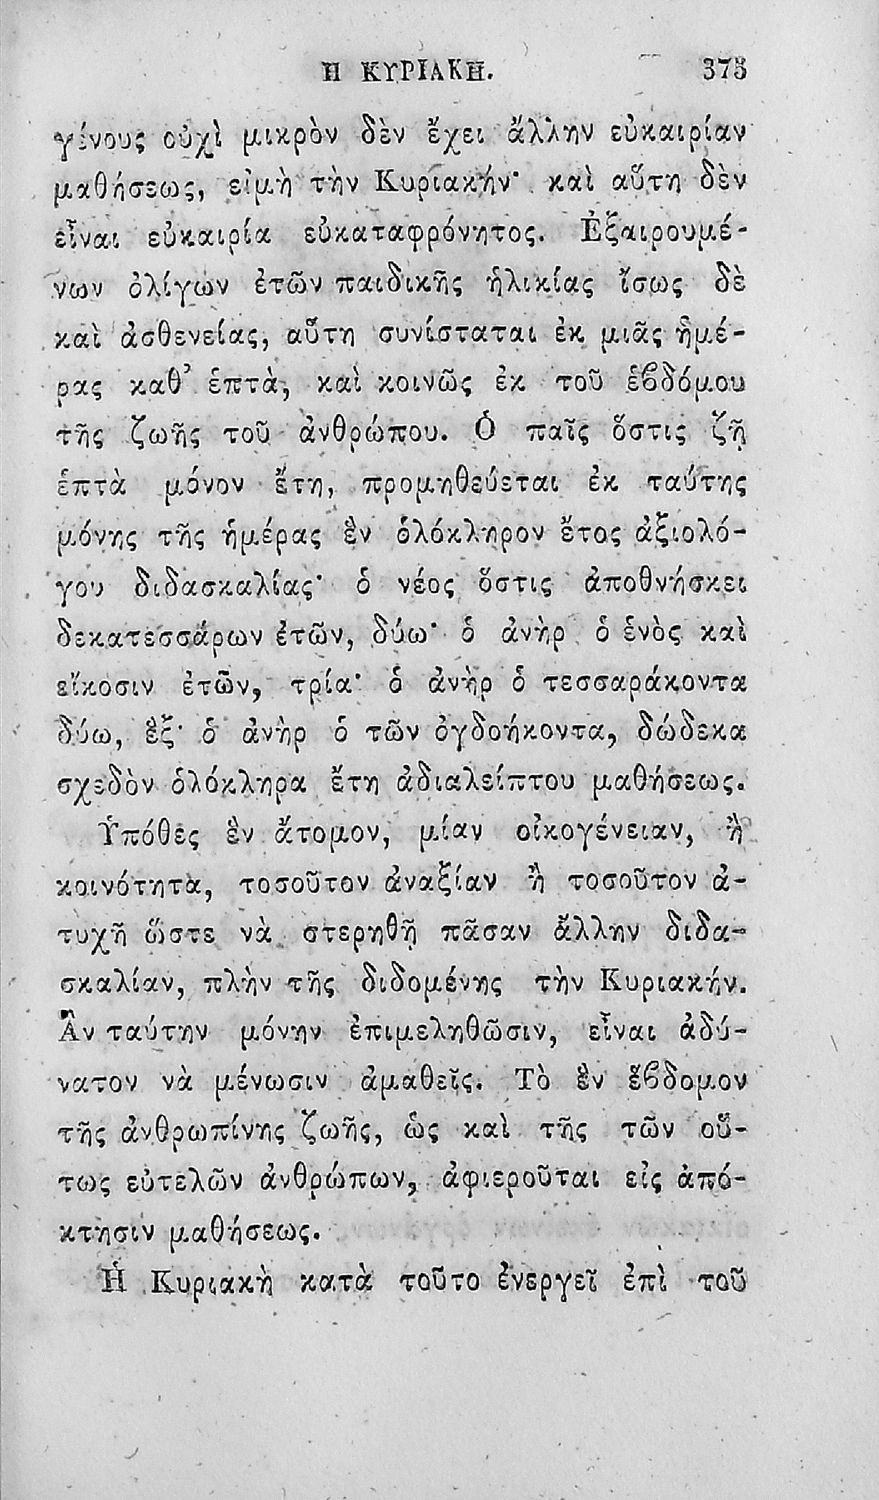 Η ΚΥΡΙΑΚΗ. 373
γένους οὐχὶ μικρὸν δὲν ἔχει ἄλλην εὐκαιρίαν
μαθήσεως, εἰμὴ τὴν Κυριακήν· καὶ αὕτη δὲν
εἶναι εὐκαιρία εὐκαταφρόνητος. Ἐξαιρουμέ-
νων ὀλίγων ἐτῶν παιδικῆς ἡλικίας ἴσως δὲ
καὶ ἀσθενείας, αὕτη συνίσταται ἐκ μιᾶς ἡμέ-
ρας καθ’ ἑπτὰ, καὶ κοινῶς ἐκ τοῦ ἑϐδόμου
τῆς ζωῆς τοῦ ἀνθρώπου. Ὁ παῖς ὅστις ζῇ
ἑπτὰ μόνον ἔτη, προμηθεύεται ἐκ ταύτης
μόνης τῆς ἡμέρας ἓν ὁλόκληρον ἔτος ἀξιολό-
γου διδασκαλίας· ὁ νέος ὅστις ἀποθνήσκει
δεκατεσσάρων ἐτῶν, δύω· ὁ ἀνὴρ ὁ ἑνὸς καὶ
εἴκοσιν ἐτῶν, τρία· ὁ ἀνὴρ ὁ τεσσαράκοντα
δύω, ἓξ· ὁ ἀνὴρ ὁ τῶν ὀγδοήκοντα, δώδεκα
σχεδὸν ὁλόκληρα ἔτη ἀδιαλείπτου μαθήσεως.
Ὑπόθες ἓν ἄτομον, μίαν οἰκογένειαν, ἢ
κοινότητα, τοσοῦτον ἀναξίαν ἢ τοσοῦτον ἀ-
τυχῆ ὥστε νὰ στερηθῇ πᾶσαν ἄλλην διδα-
σκαλίαν, πλὴν τῆς διδομένης τὴν Κυριακήν.
Ἂν ταύτην μόνην ἐπιμεληθῶσιν, εἶναι ἀδύ-
νατον νὰ μένωσιν ἀμαθεῖς. Τὸ ἓν ἕϐδομον
τῆς ἀνθρωπίνης ζωῆς, ὡς καὶ τῆς τῶν οὕ-
τως εὐτελῶν ἀνθρώπων, ἀφιεροῦται εἰς ἀπό-
κτησιν μαθήσεως.
Ἡ Κυριακὴ κατὰ τοῦτο ἐνεργεῖ ἐπὶ τοῦ